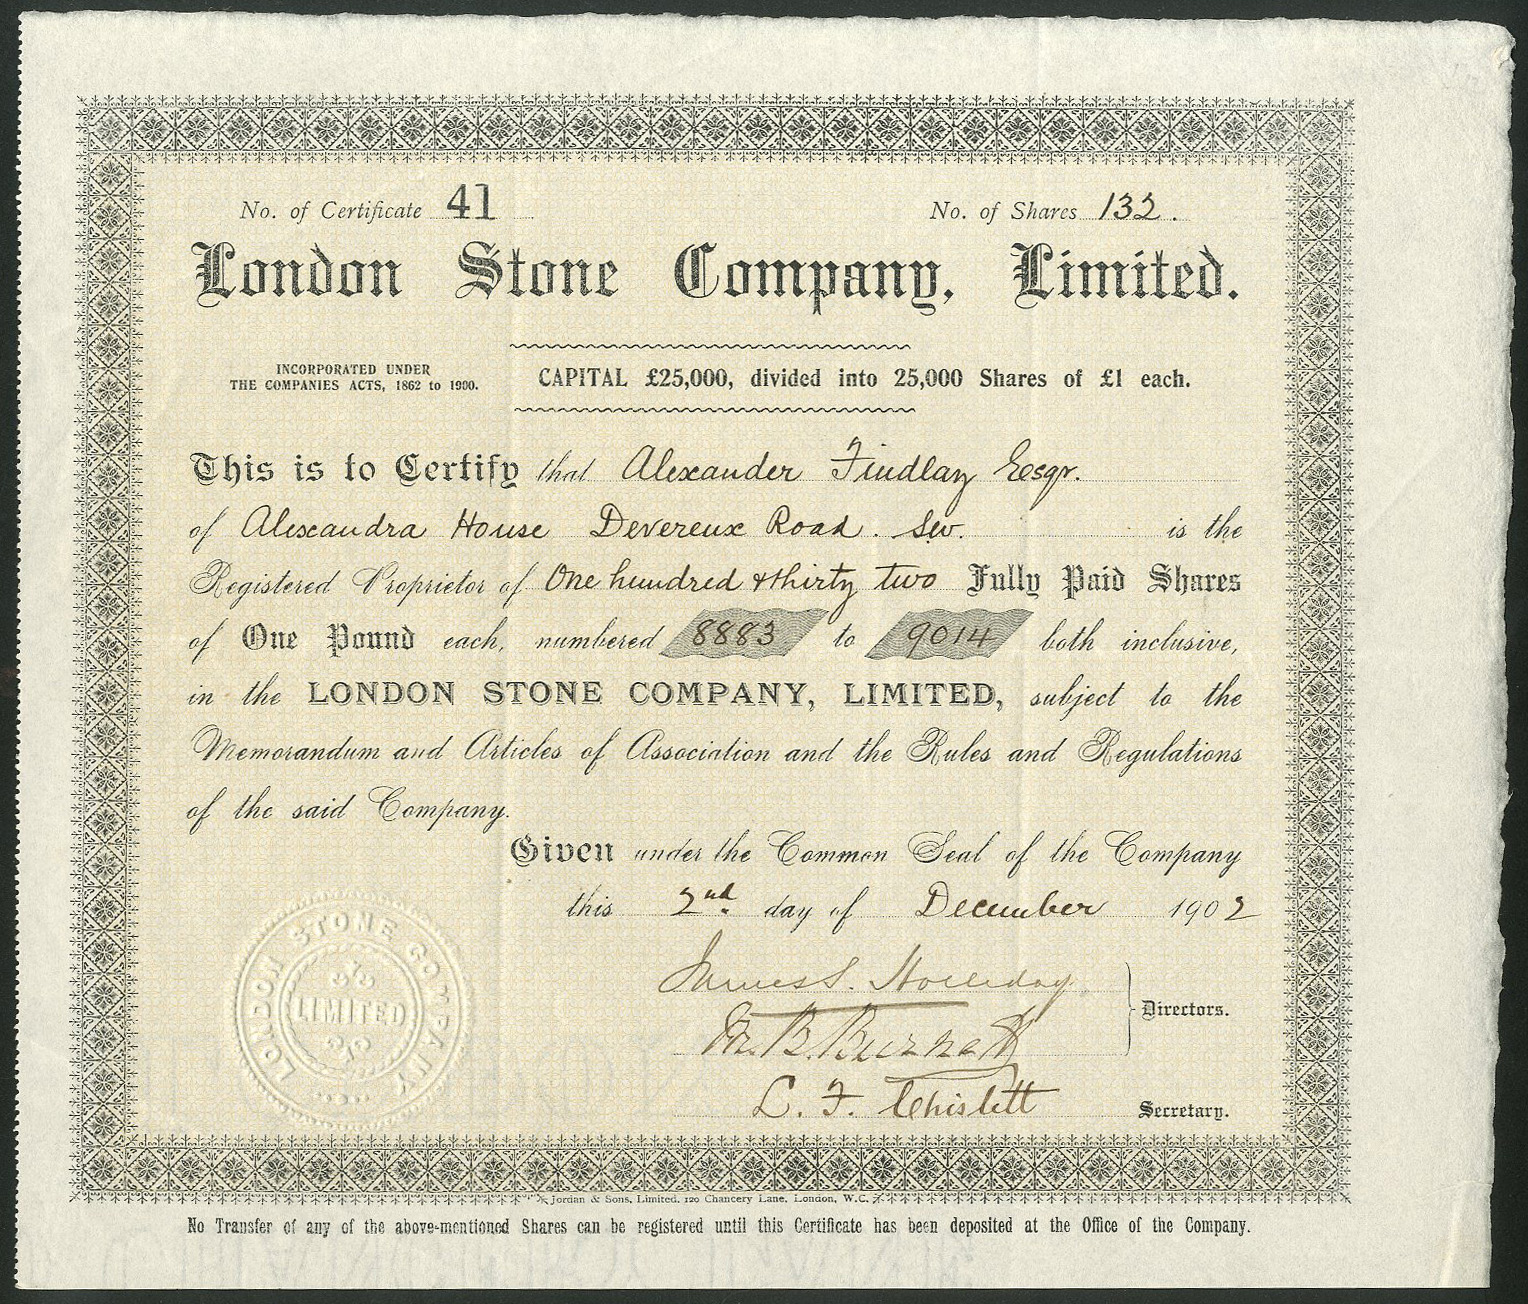 No. of Certificate 41 No. of Shares 132.
London Stone Company, Limited.
INCORPORATED UNDER
THE COMPANIES ACTS, 1862 to 1900.
CAPITAL £25,000, divided into 25,000 Shares of £1 each.
This is to Certify that Alexander Findlay Esqr.
of Alexandra House Devereux Road. SW. is the
Registered Proprietor of One hundred & thirty two Fully Paid Shares
of One Pound each, numbered 8883 to 9014 both inclusive,
in the LONDON STONE COMPANY, LIMITED, subject to the
Memorandum and Articles of Association and the Rules and Regulations
of the said Company.
Given under the Common Seal of the Company
this 2nd. day of December 1902
James S. Holliday
M. B. Burnett
Directors.
C. F. Chislett
Secretary.
LONDON STONE COMPANY
LIMITED
Jordan & Sons, Limited, 120 Chancery Lane, London, W.C.
No Transfer of any of the above-mentioned Shares can be registered until this Certificate has been deposited at the Office of the Company.